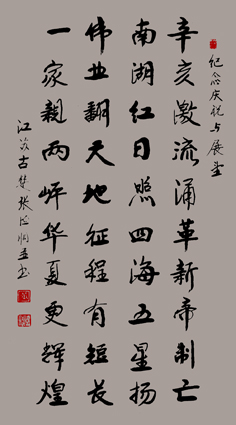 纪念庆祝与展望
辛亥激流涌革新帝制亡
南湖红日照四海五星扬
伟业翻天地征程有短长
一家亲两岸华夏更辉煌
江苏古楚张